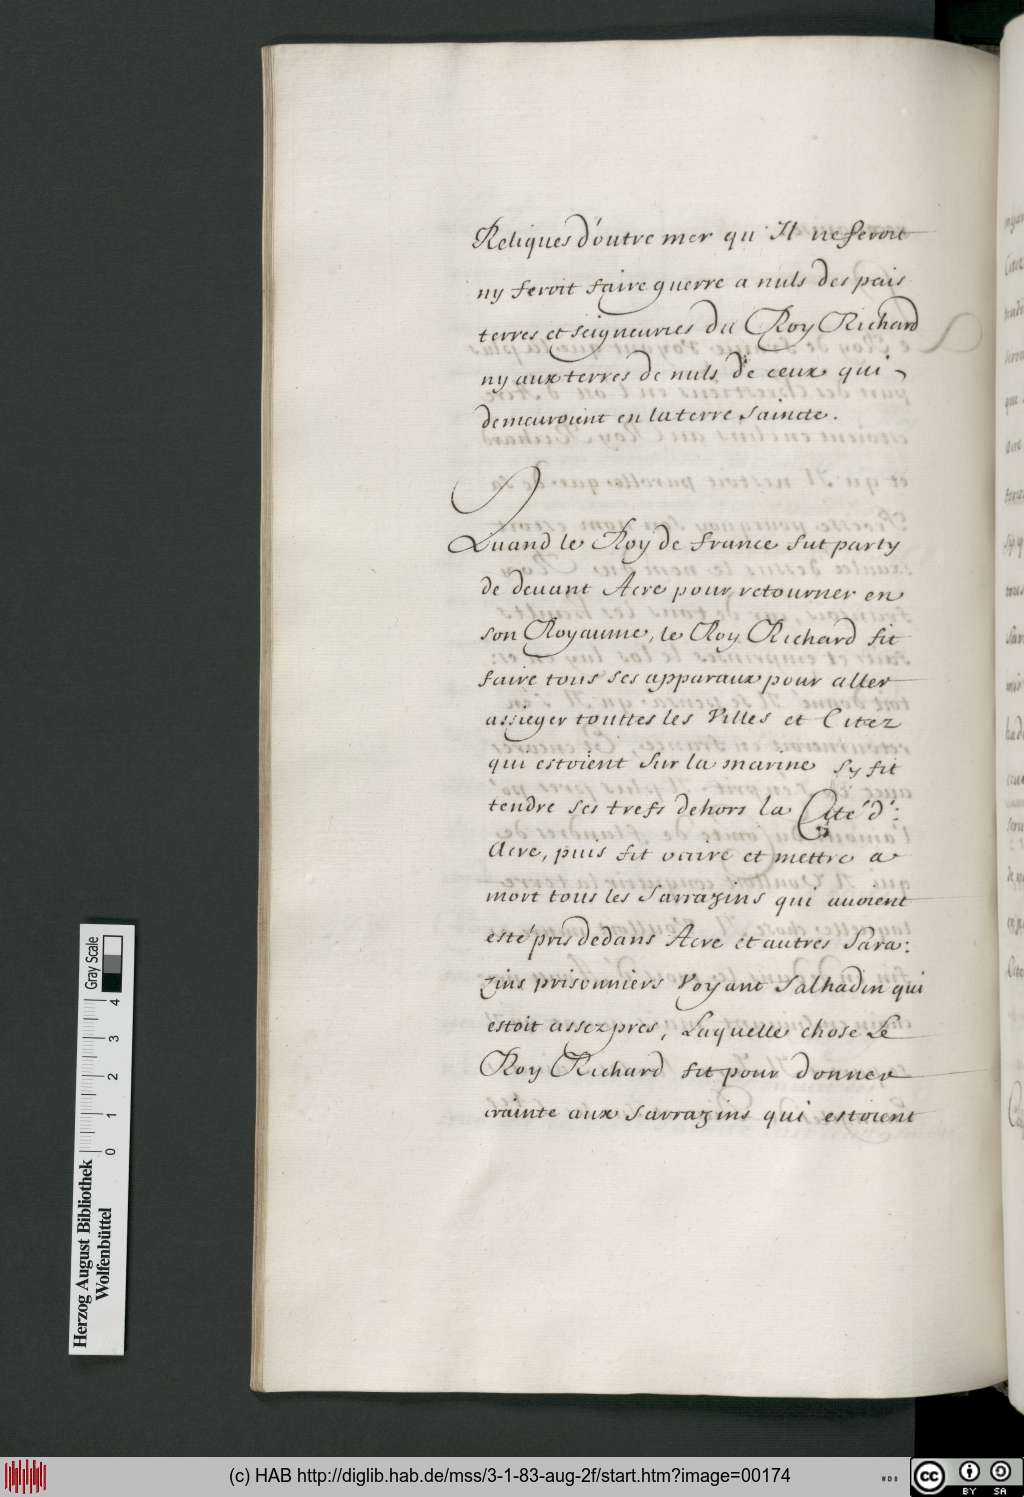 Reliques d'outre mer qu'Il ne feroit
ny feroit faire guerre a nuls des pais
terres et seigneuries du Roy Richard
ny aux terres de nuls de ceux qui
demeuroient en la terre saincte.
Quand le Roy de france fut party
de devant Acre pour retourner en
son Royaume, le Roy Richard fit
faire tous ses apparaux pour aller
assieger touttes les Villes et Citez
qui estoient sur la marine sy fit
tendre ses trefs dehors la Cité d':
Acre, puis fit occire et mettre a
mort tous les Sarrazins qui avoient
esté pris dedans Acre et autres Sara:
zins prisonniers Voyant Salhadin qui
estoit assez pres, Laquelle chose Le
Roy Richard fit pour donner
crainte aux Sarrazins qui estoient
Herzog August Bibliothek
Wolfenbüttel
0 1 2 3 4
Gray Scale
(c) HAB http://diglib.hab.de/mss/3-1-83-aug-2f/start.htm?image=00174
WDB
CC BY SA